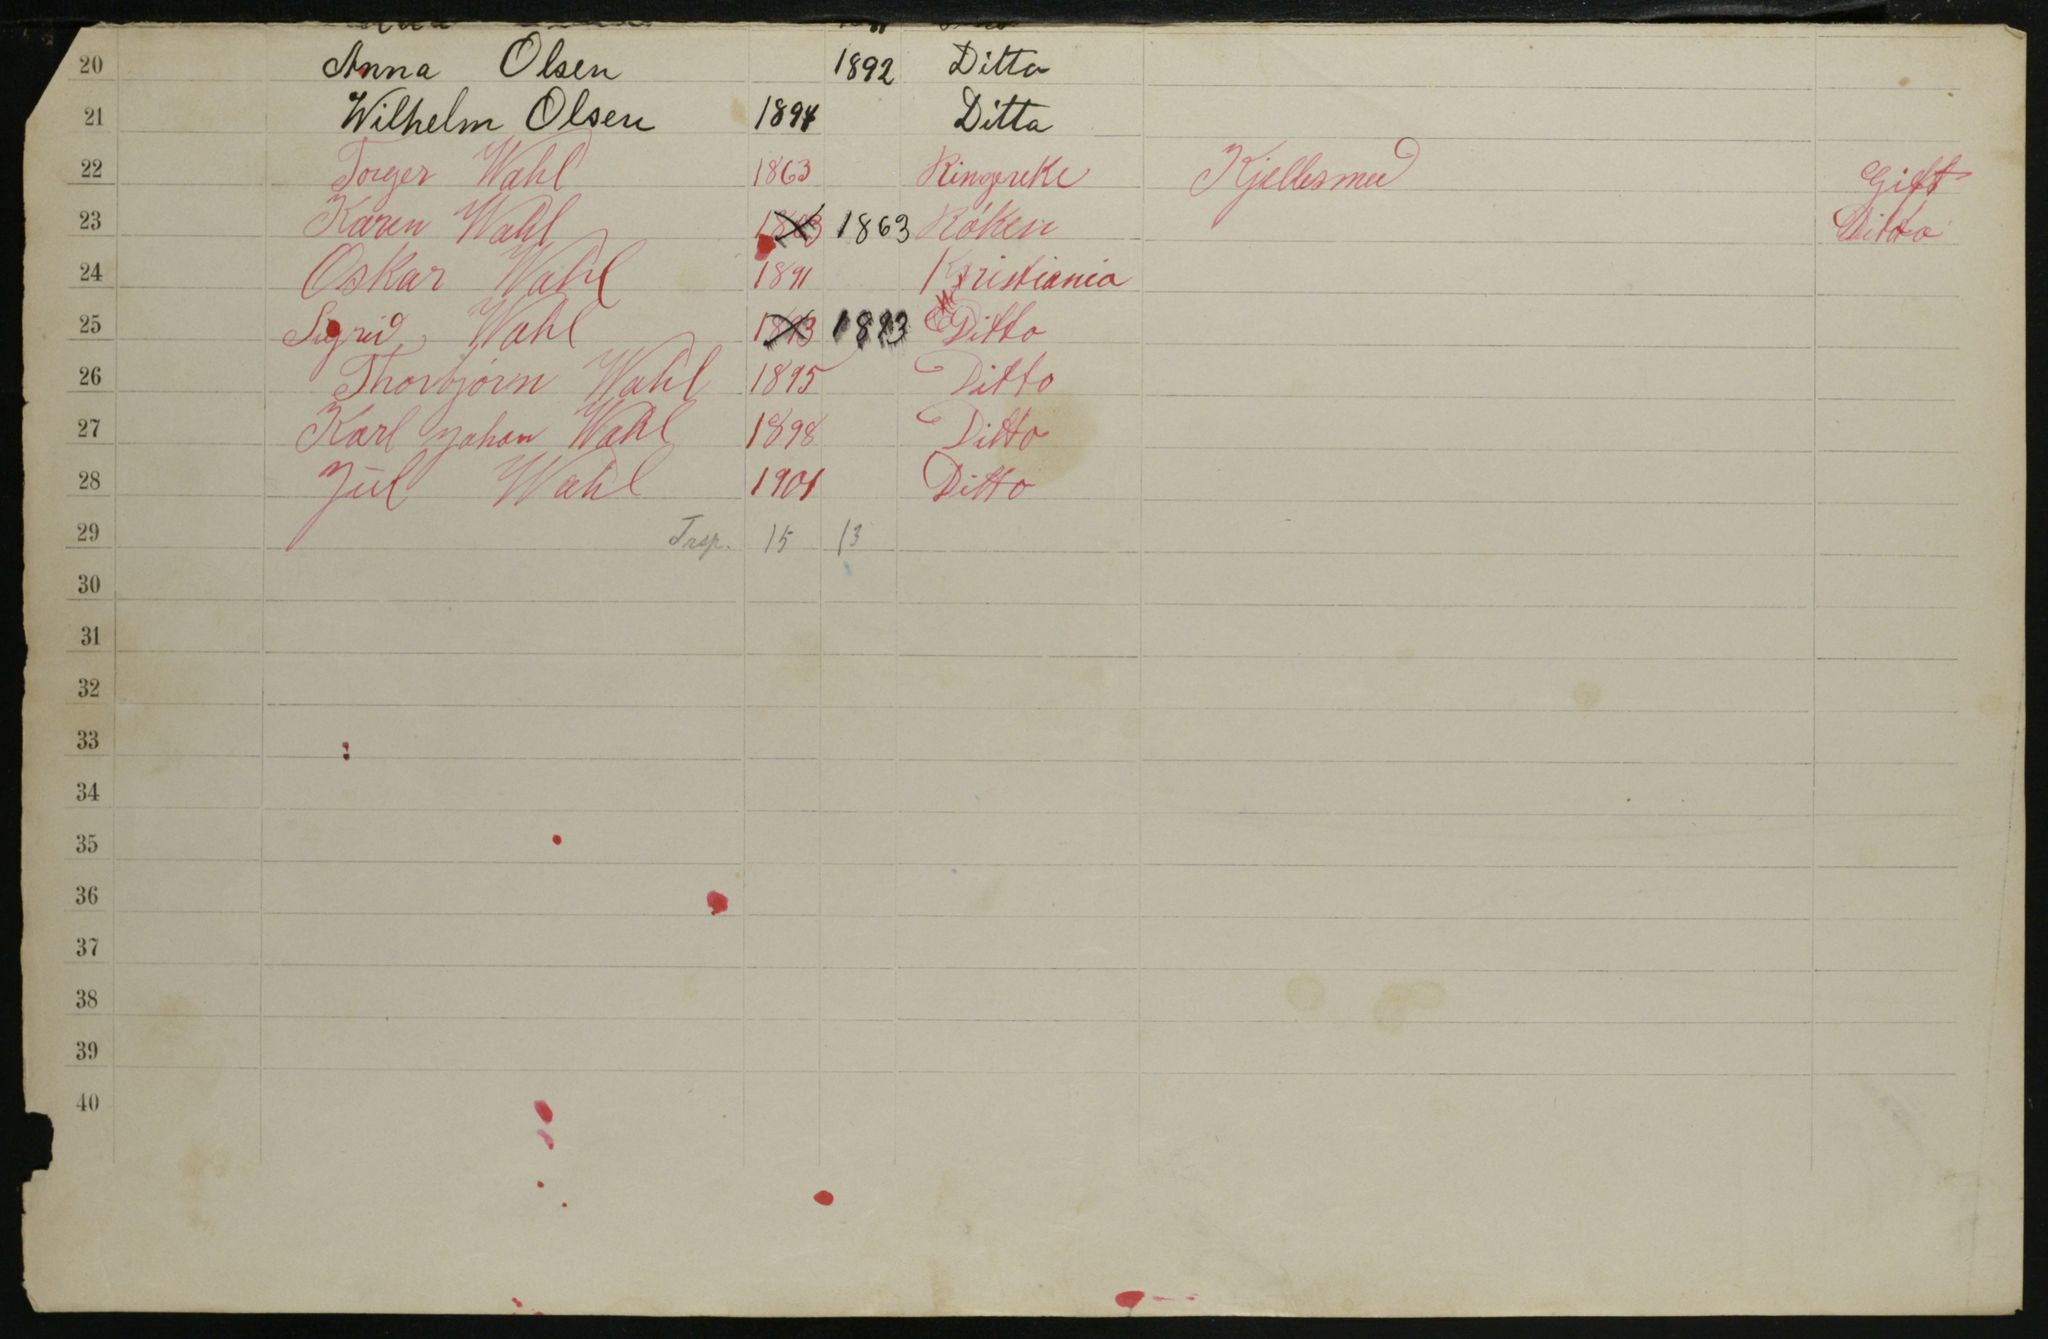 20 Anna Olsen 1892 Ditto
21 Wilhelm Olsen 1894 Ditta
22 Torger Wahl 1863 Ringereke Kjellesmed Gift
23 Karen Wahl 1863 1863 Röken Ditto
24 Oskar Wahl 1891 Kristiania
25 Sigrid Wahl 1893 1893 Ditto
26 Thorbjorn Wahl 1895 Ditto
27 Karl Johan Wahl 1898 Ditto
28 Jul Wahl 1901 Ditto
29 Trsp. 15 13
30
31
32
33
34
35
36
37
38
39
40